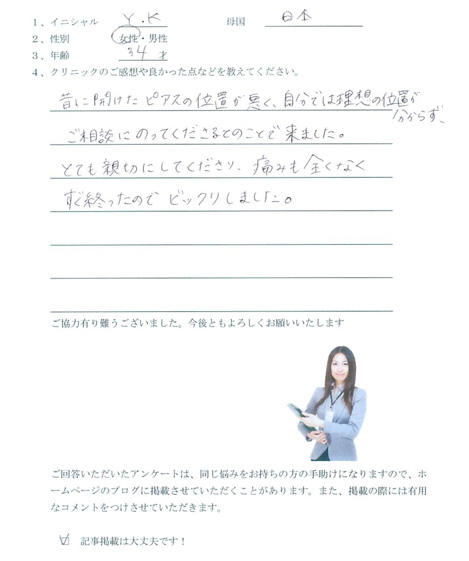 1、イニシャル Y.K 母国 日本
2、性別 女性・男性
3、年齢 34才
4、クリニックのご感想や良かった点などを教えてください。
昔に開けたピアスの位置が悪く、自分では理想の位置が
分からず、
ご相談にのってくださるとのことで来ました。
とても親切にしてくださり、痛みも全くなく
すぐ終ったのでビックリしました。
ご協力有り難うございました。今後ともよろしくお願いいたします
ご回答いただいたアンケートは、同じ悩みをお持ちの方の手助けになりますので、ホ
ームページのブログに掲載させていただくことがあります。また、掲載の際には有用
なコメントをつけさせていただきます。
☑ 記事掲載は大丈夫です！